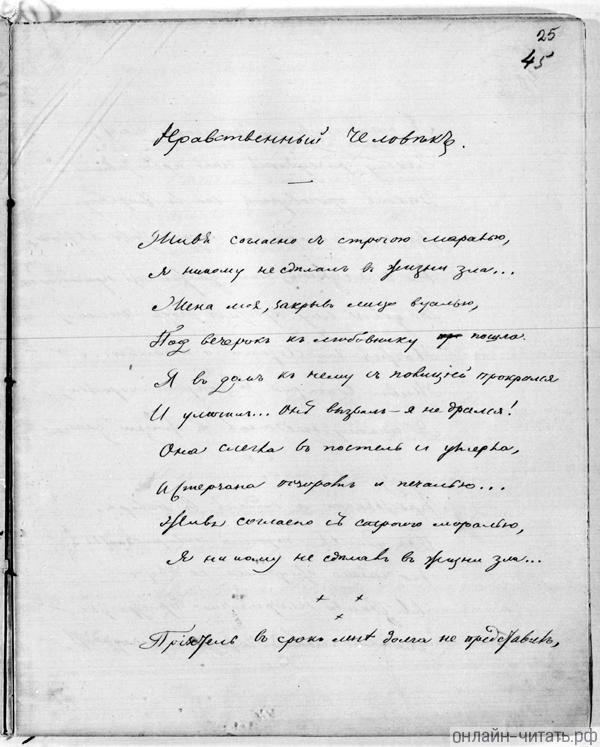 25
45
Нравственный человѣкъ.
Живя согласно съ строгою моралью,
Я никому не сдѣлалъ въ жизни зла...
Жена моя, закрывъ лицо вуалью,
Подъ вечерокъ къ любовнику пошла.
Я въ домъ къ нему съ полиціей прокрался
И уличилъ... Онъ вызвалъ — я не дрался!
Она слегла въ постель и умерла,
Истерзана позоромъ и печалью...
Живя согласно съ строгою моралью,
Я никому не сдѣлалъ въ жизни зла...
+ + +
Пріятель въ срокъ мнѣ долга не представилъ,
онлайн-читать.рф